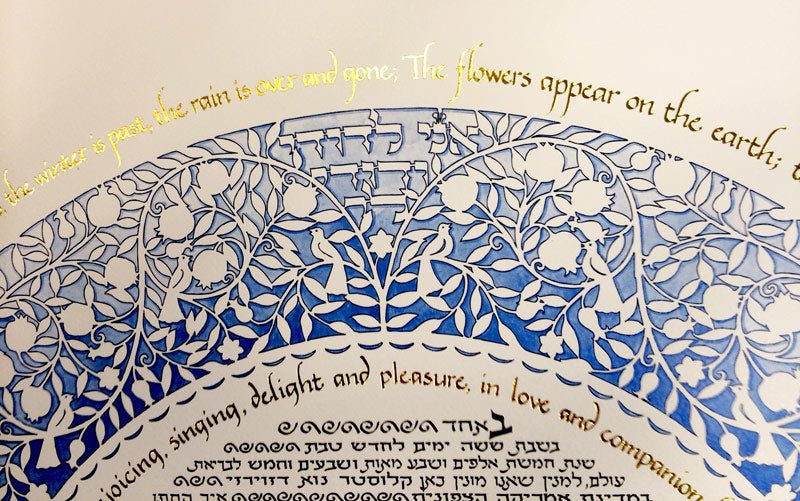 the winter is past, the rain is over and gone; The flowers appear on the earth;
אני לדודי
ודודי
לי
joicing, singing, delight and pleasure, in love and companion
באחד
בשבת ששה ימים לחדש טבת
שנת חמשת אלפים ושבע מאות ושבעים וחמש לבריאת
עולם, למנין שאנו מונין כאן קלוסטר נוא
במדינת אמריקה הצפונית איך החתן